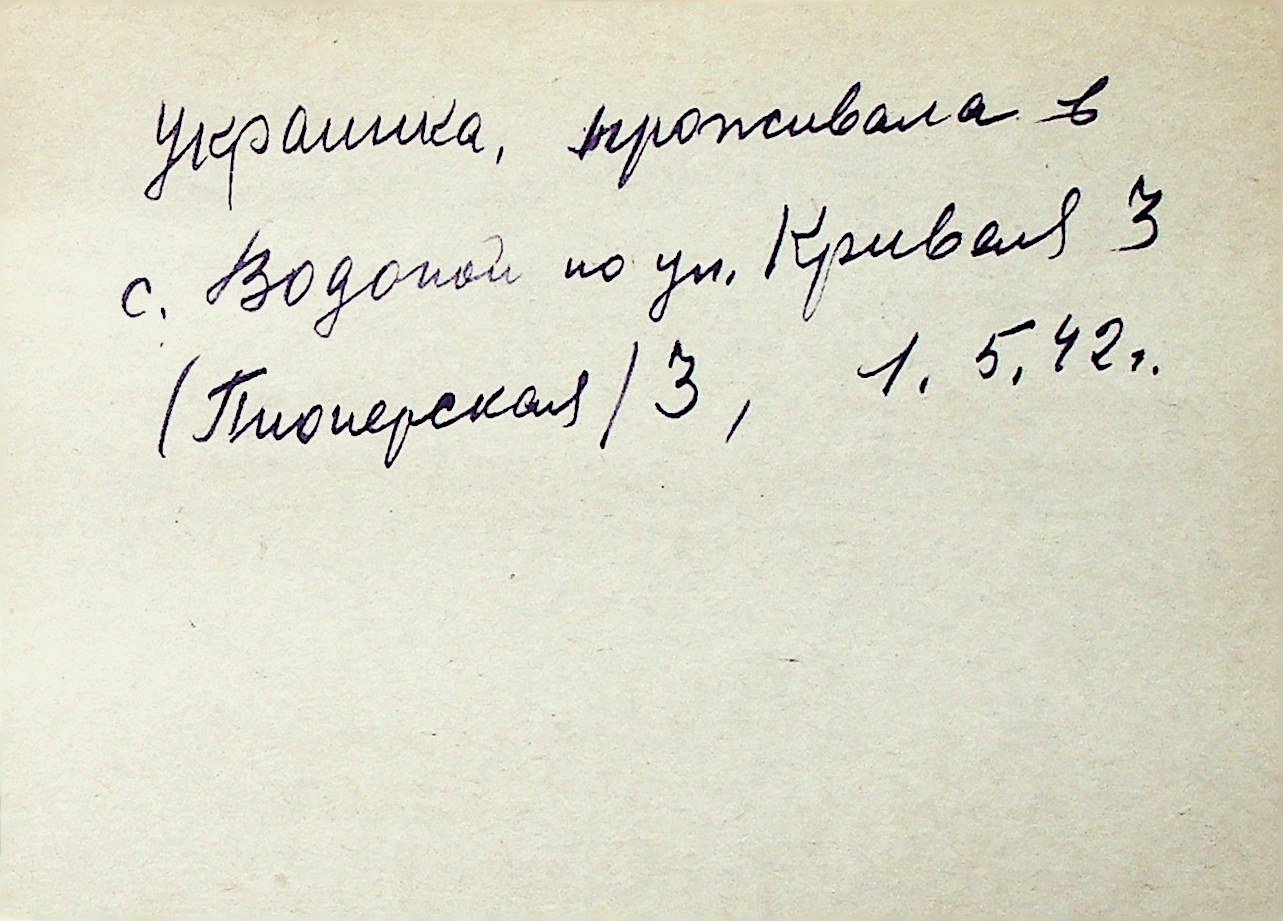 Украинка, проживала в
с. Водопой по ул. Кривая 3
(Пионерская) 3, 1.5.42г.